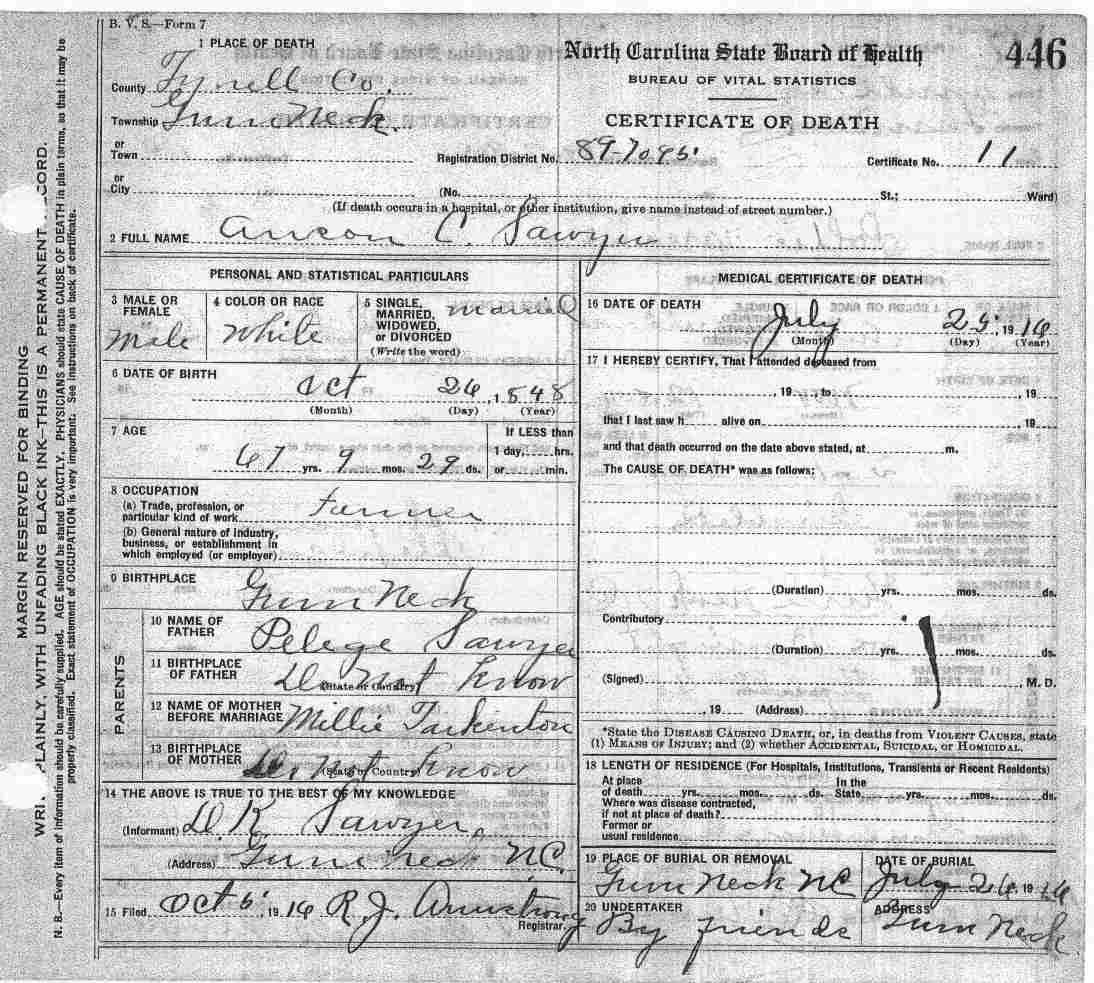 B. V. S.—Form 7
1 PLACE OF DEATH
County Tyrrell Co.
Township Gum Neck.
or
Town
or
City
North Carolina State Board of Health
446
BUREAU OF VITAL STATISTICS
CERTIFICATE OF DEATH
Registration District No. 89-7095 Certificate No. 11
(No. St.; Ward)
(If death occurs in a hospital, or other institution, give name instead of street number.)
2 FULL NAME Anson C. Sawyer
PERSONAL AND STATISTICAL PARTICULARS
3 MALE OR FEMALE
Male
4 COLOR OR RACE
White
5 SINGLE, MARRIED, WIDOWED, or DIVORCED
(Write the word)
Married
6 DATE OF BIRTH
Oct 26, 1848
(Month) (Day) (Year)
7 AGE
67 yrs. 9 mos. 29 ds.
If LESS than
1 day, hrs.
or min.
8 OCCUPATION
(a) Trade, profession, or
particular kind of work Farmer
(b) General nature of industry,
business, or establishment in
which employed (or employer)
9 BIRTHPLACE
Gum Neck
PARENTS
10 NAME OF FATHER Pelege Sawyer
11 BIRTHPLACE OF FATHER
(State or Country)
Do not know
12 NAME OF MOTHER BEFORE MARRIAGE Millie Tarkenton
13 BIRTHPLACE OF MOTHER
(State or Country)
Do not know
14 THE ABOVE IS TRUE TO THE BEST OF MY KNOWLEDGE
(Informant) D. K. Sawyer
(Address) Gum neck N.C.
15 Filed Oct 5, 1916 R. J. Armstrong
Registrar.
MEDICAL CERTIFICATE OF DEATH
16 DATE OF DEATH
July 25, 1916
(Month) (Day) (Year)
17 I HEREBY CERTIFY, That I attended deceased from
, 19 to , 19
that I last saw h alive on , 19
and that death occurred on the date above stated, at m.
The CAUSE OF DEATH* was as follows:
(Duration) yrs. mos. ds.
Contributory
(Duration) yrs. mos. ds.
(Signed) , M. D.
, 19 (Address)
*State the DISEASE CAUSING DEATH, or, in deaths from VIOLENT CAUSES, state
(1) MEANS OF INJURY; and (2) whether ACCIDENTAL, SUICIDAL, or HOMICIDAL.
18 LENGTH OF RESIDENCE (For Hospitals, Institutions, Transients or Recent Residents)
At place of death yrs. mos. ds. In the State yrs. mos. ds.
Where was disease contracted,
if not at place of death?
Former or
usual residence
19 PLACE OF BURIAL OR REMOVAL
Gum Neck NC
DATE OF BURIAL
July 26, 1916
20 UNDERTAKER
By friends
ADDRESS
Gum Neck
MARGIN RESERVED FOR BINDING
WRI PLAINLY, WITH UNFADING BLACK INK—THIS IS A PERMANENT CORD.
N. B.—Every item of information should be carefully supplied. AGE should be stated EXACTLY. PHYSICIANS should state CAUSE OF DEATH in plain terms, so that it may be
properly classified. Exact statement of OCCUPATION is very important. See instructions on back of certificate.